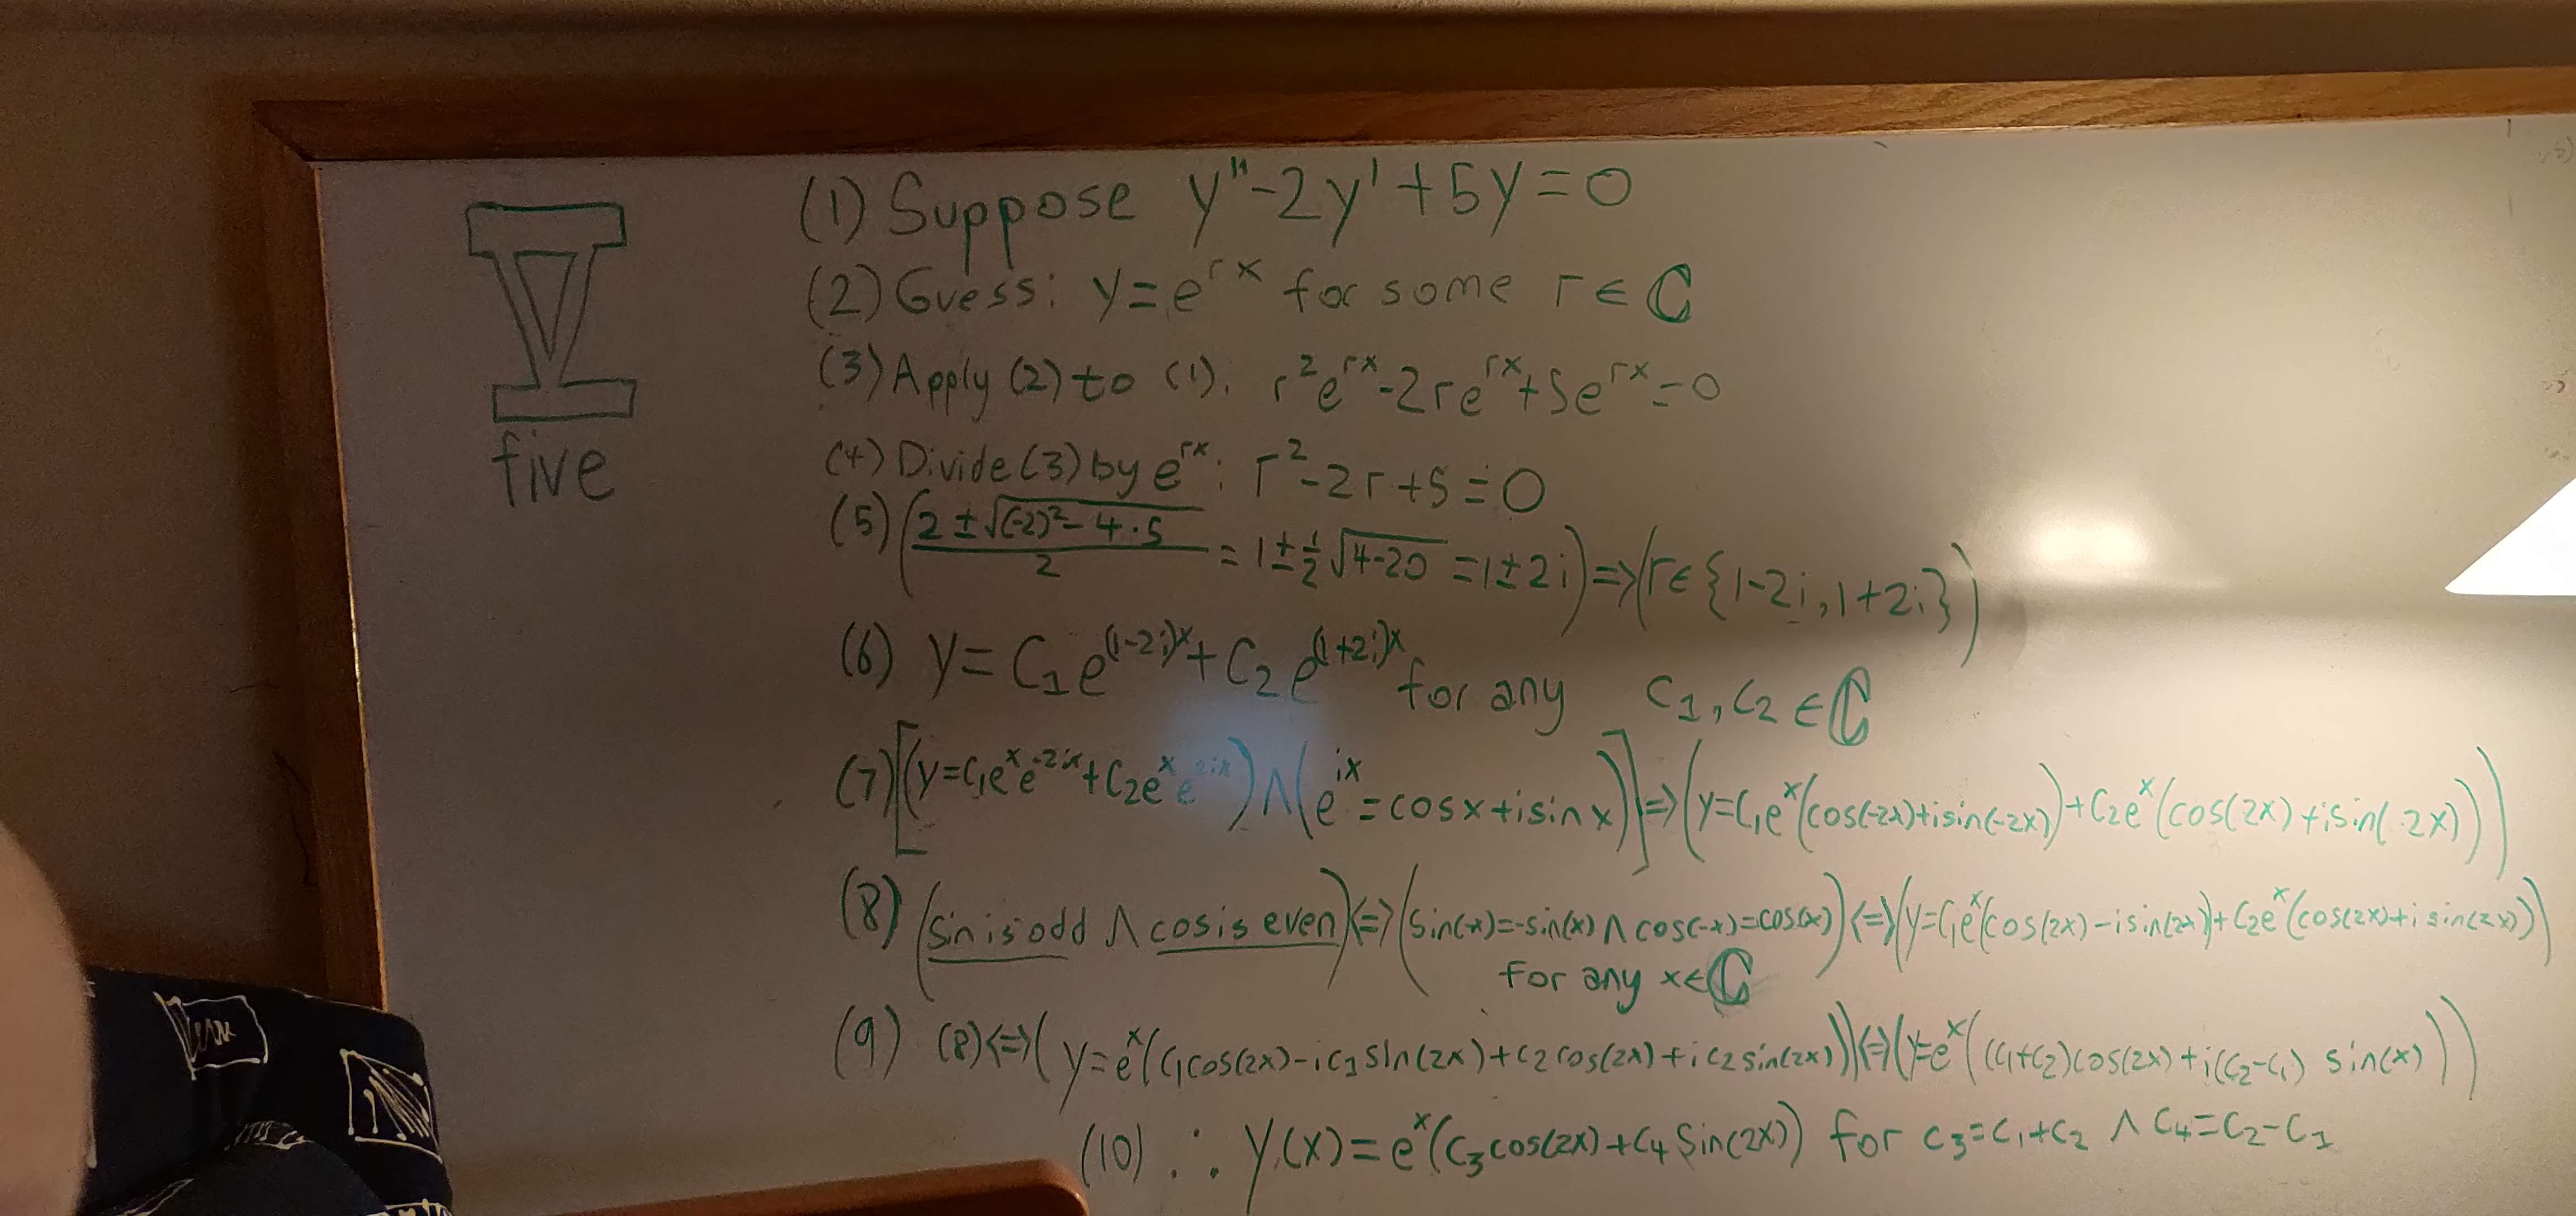 V
five
(1) Suppose y''-2y'+5y=0
(2) Guess: y=e^{rx} for some r∈ℂ
(3) Apply (2) to (1): r^2e^{rx}-2re^{rx}+5e^{rx}=0
(4) Divide (3) by e^{rx}: r^2-2r+5=0
(5) ((2±√((-2)^2-4·5))/2 = 1±1/2√(4-20) = 1±2i) => (r∈{1-2i, 1+2i})
(6) y=C_1e^{(1-2i)x}+C_2e^{(1+2i)x} for any C_1, C_2∈ℂ
(7) [(y=C_1e^xe^{-2ix}+C_2e^xe^{2ix}) ∧ (e^{ix}=cosx+isinx)] => (y=C_1e^x(cos(-2x)+isin(-2x))+C_2e^x(cos(2x)+isin(2x)))
(8) (sin is odd ∧ cos is even) <=> (sin(-x)=-sin(x) ∧ cos(-x)=cos(x)) <=> (y=C_1e^x(cos(2x)-isin(2x))+C_2e^x(cos(2x)+isin(2x)))
for any x∈ℂ
(9) (8) <=> (y=e^x(C_1cos(2x)-iC_1sin(2x)+C_2cos(2x)+iC_2sin(2x))) <=> (y=e^x((C_1+C_2)cos(2x)+i(C_2-C_1)sin(x)))
(10) ∴ y(x)=e^x(C_3cos(2x)+C_4sin(2x)) for C_3=C_1+C_2 ∧ C_4=C_2-C_1